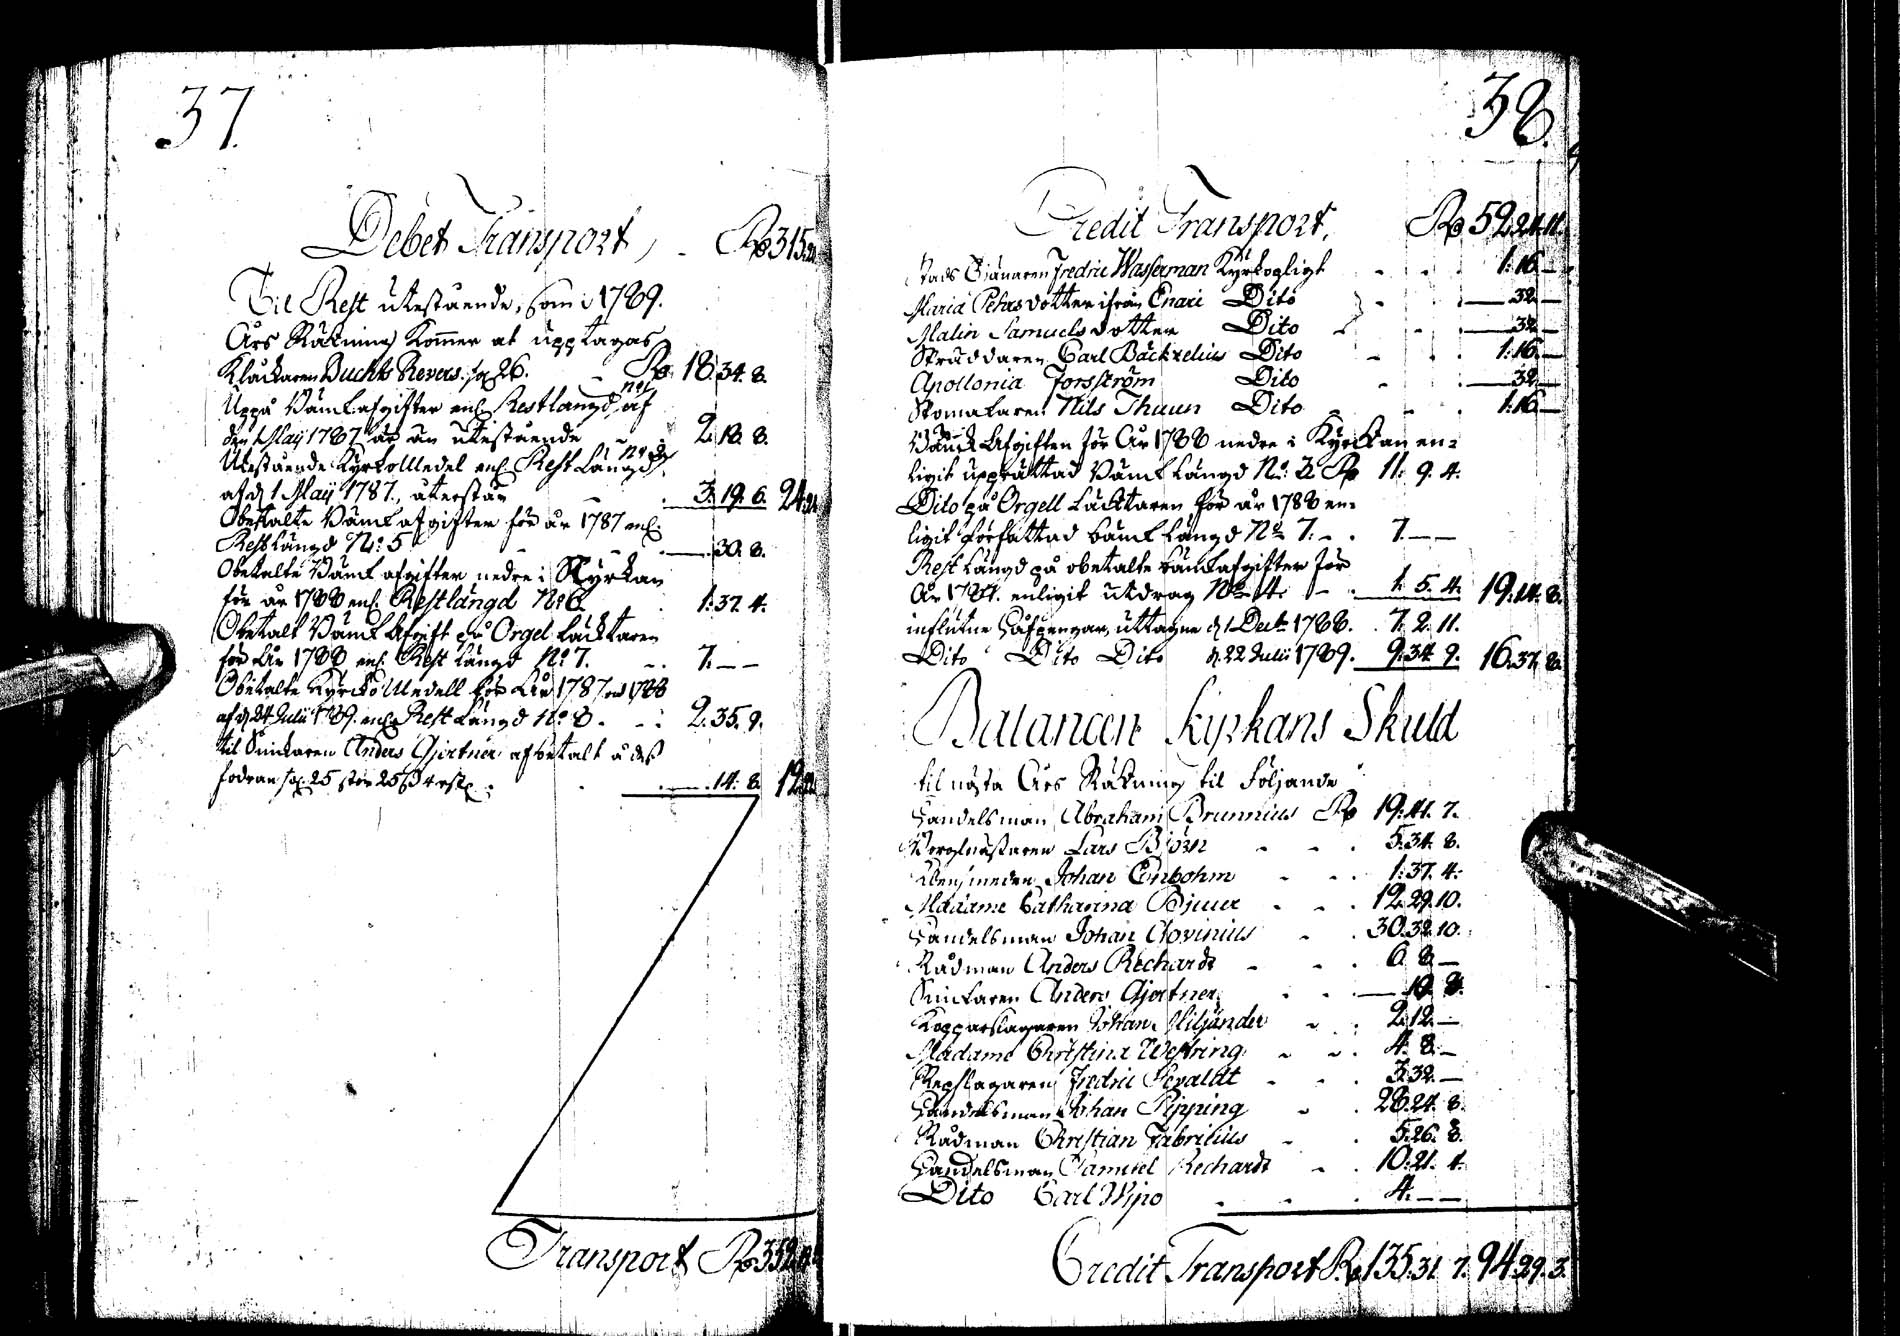 37.
Debet Transport, - Rd 315.
Til Rest utestående, som i 1789.
Års Räkning Kommer at upptagas
Klåckaren Buchts Revers. pag 26. - Rd 18.34.8.
Uppå Bänck afgifter enl. Restlängd no 1 af
den 1 Maij 1787 är än utestående 2.18.8.
Utestående Kyrko Medel enl. Rest Längd
af d 1 Maij 1787., återstår - . 3.19.6. 24.
Obetalte Bänck afgifter för år 1787 enl.
Rest Längd No: 5 - - . —.30.8.
Obetalte Bänck afgifter nedre i Kyrkan
för år 1788 enl. Restlängd No 6. . 1.37.4.
Obetalt Bänck Afgift på Orgel Läcktaren
för År 1788 enl. Rest Längd No 7. - . 7.— —
Obetalte Kyrcko Medell för År 1787 och 1788
af d 24 Julii 1789. enl. Rest Längd No 8. - . 2.35.9.
til Snickaren Anders Gjertner afbetalt å dess
fodran pag. 25 . —.14.8. 12.
Transport Rd 352.
38.
Credit Transport. Rd 52.24.11.
Stads Tjänaren Fredric Wasserman Kyrkogligt - - . 1:16.—
Maria Pehrs dotter ifrån Enari Dito - . —32.—
Malin Samuels dotter Dito - . —32.—
Skräddaren Carl Bäckrelius Dito - . 1:16.—
Apollonia Forsström Dito - . —32.—
Skomakaren Nils Thuun Dito - . 1:16.—
Bänck Afgiften för År 1788 nedre i Kyrckan en=
ligit upprättad Bänck Längd No. 2. Rd 11. 9. 4.
Dito på Orgell Läcktaren för år 1788 en=
ligit författad bänck Längd No 7. - . 7.— —
Rest Längd på obetalte bänck afgifter för
År 1787. enligit utdrag No 4. - . 1. 5. 4. 19.14.8.
influtne Håfpengar, uttagne d 1 Decbr 1788. . 7. 2. 11.
Dito Dito Dito d. 22 Julii 1789. 9.34.9. 16.37.8.
Balancen Kyrkans Skuld
til nästa Års Räkning til Följande
Handelsman Abraham Brunnius Rd 19.41.7.
Lars Björn - - . 5.34.8.
Johan Enbohm - - . 1.37.4.
Madame Catharina Bjuur - - . 12.29.10.
Handelsman Johan Clovinius - . 30.32.10.
Rådman Anders Rechardt - - . 6. 8.—
Snickaren Anders Gjertner - - . — 19. 8.
Kopparslagaren Johan Miljander - . 2.12.—
Madame Christina Westring - - . 4. 8.—
Repslagaren Fredric Sevaldt - - . 3.32.—
Handelsman Johan Pipping - . 28.24.8.
Rådman Christian Fabricius - . 5.26.8.
Handelsman Samuel Rechardt - . 10.21.4.
Dito Carl Wijo - - . 4.— —
Credit Transport Rd 135.31.7. 94.29.3.